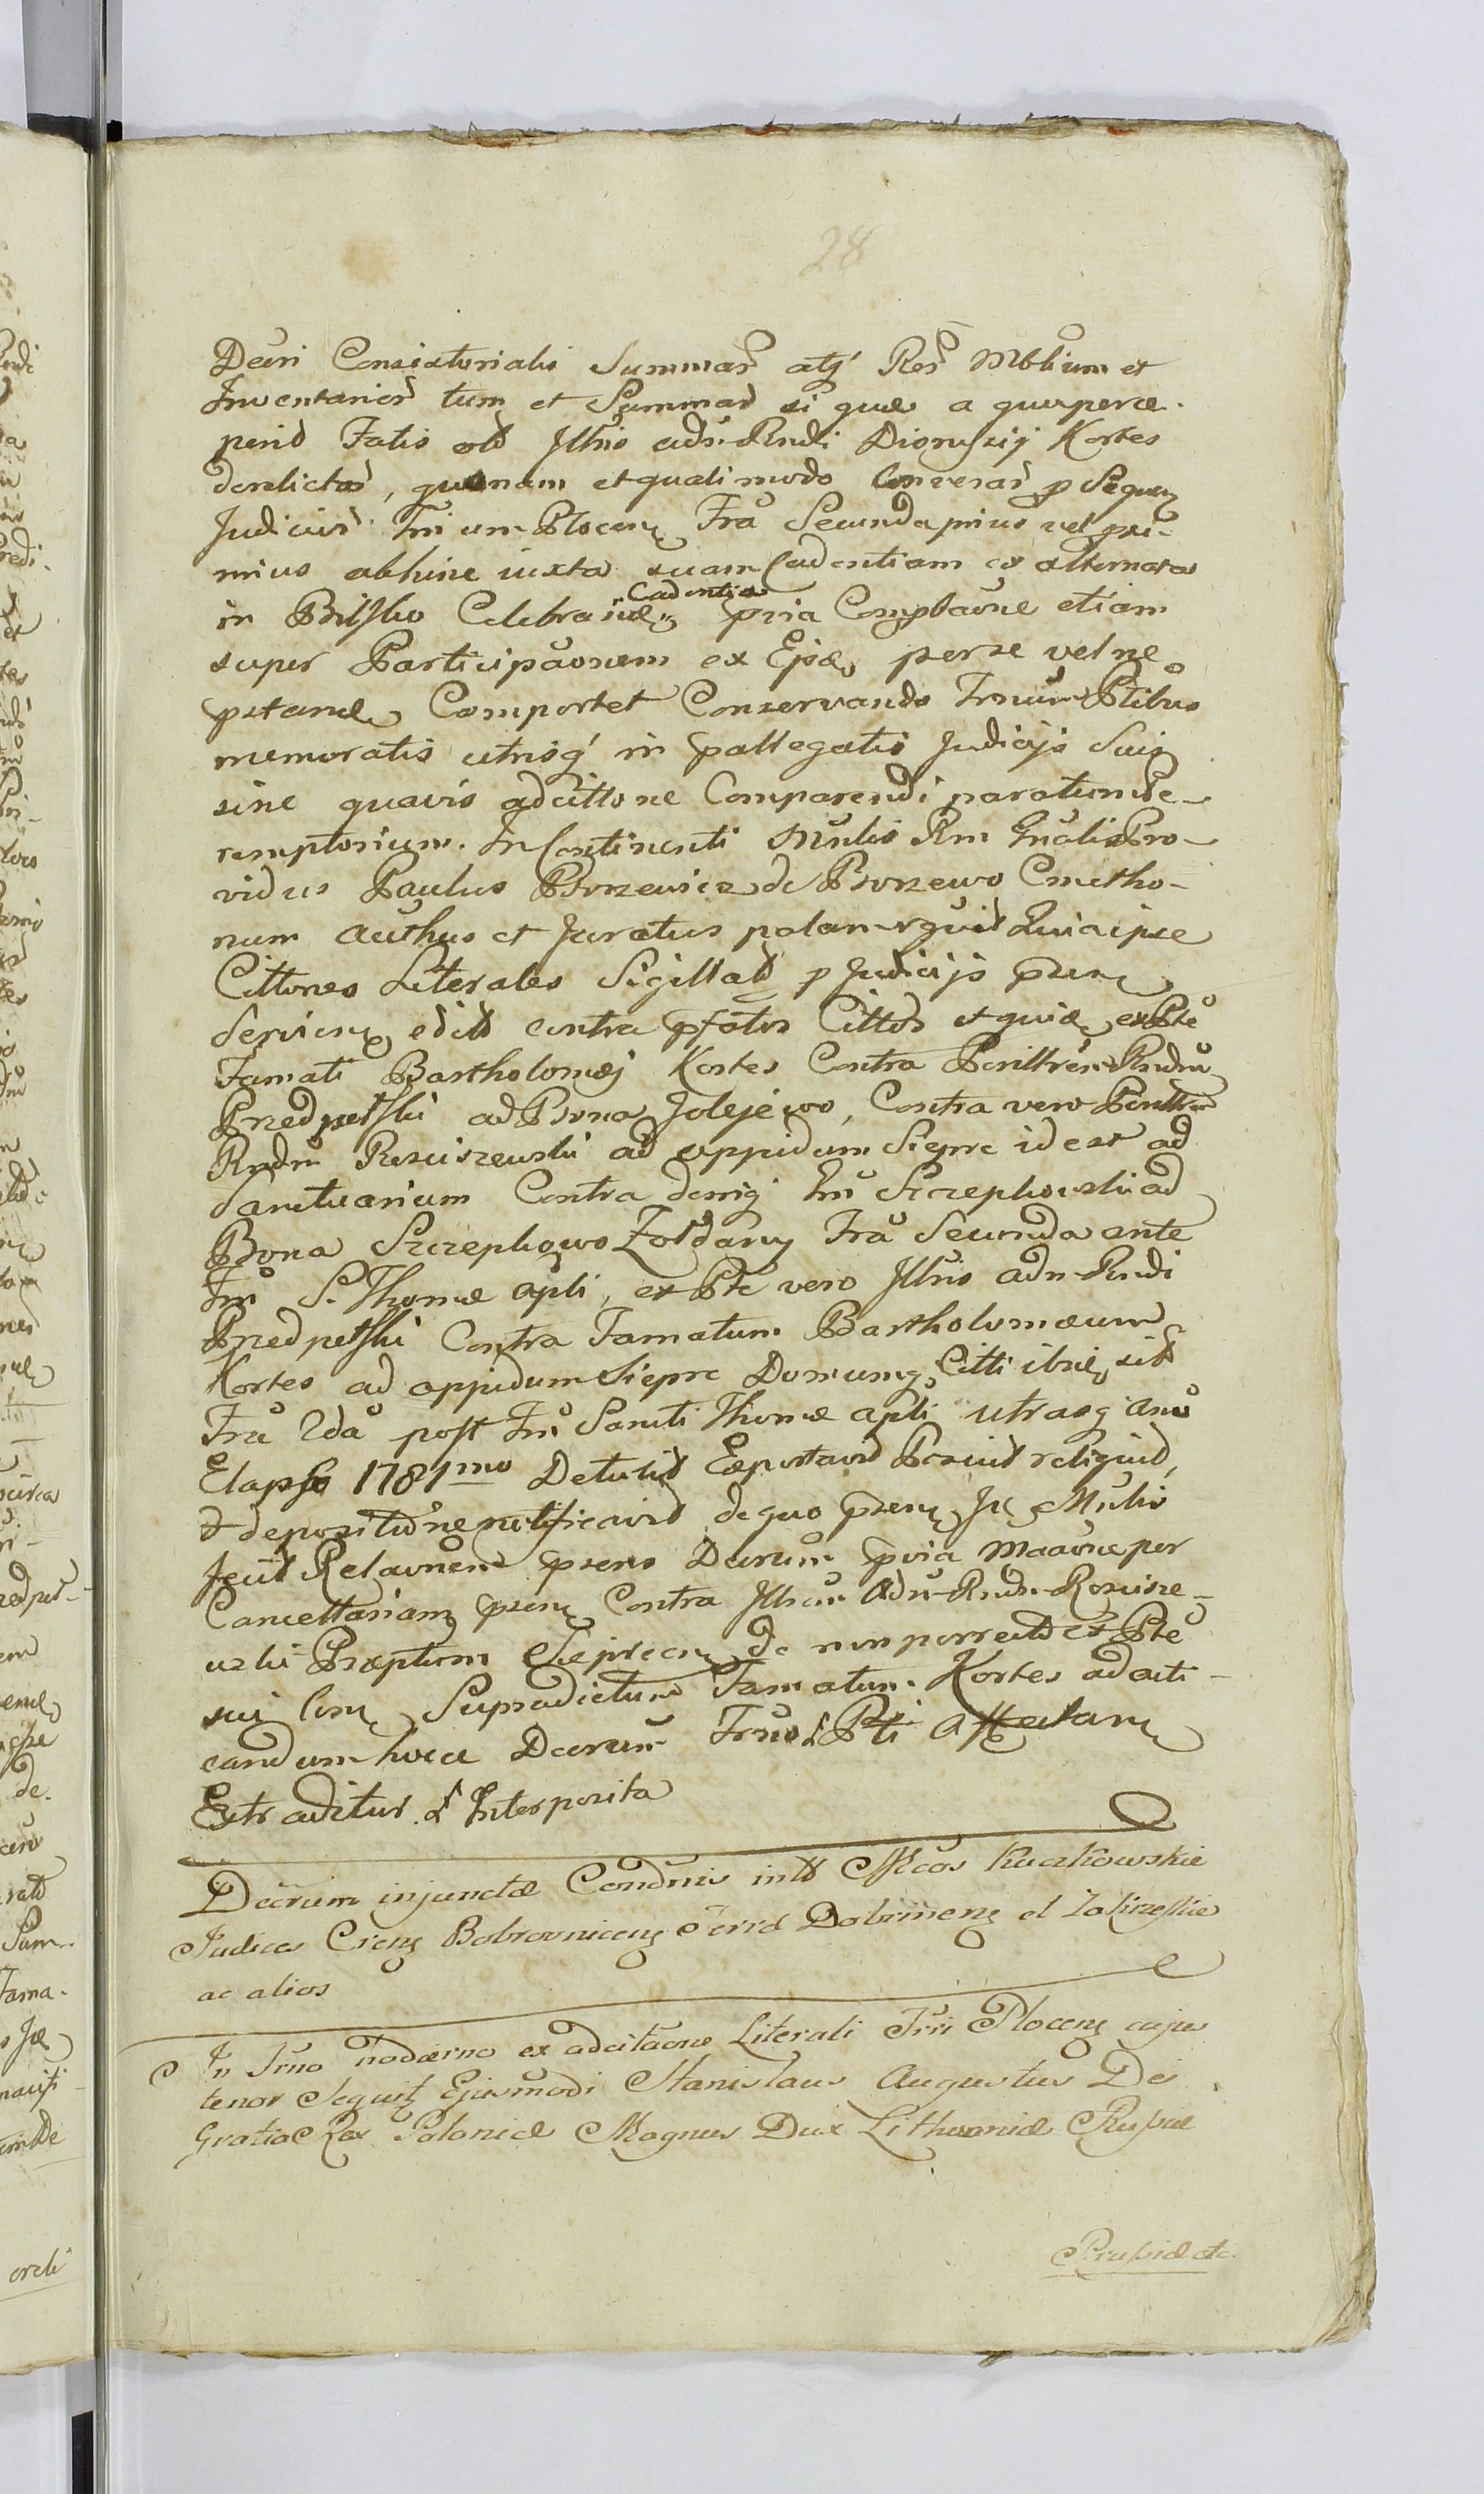 28
Decri Consistorialis Summar atq Rer Mblium et
Inventarior tum et Summar si quae a quaperce.
perid Fatis olt Illris adm Rndi Dionysij Kortes
derelictar, quonam et quali modo Conversar p Sequen
Judicior Tri um Plocen Fra Secunda prius vel pri-
mius abhinc iuxta suam Cadentiam ex alternata
Cadentia
in Bilsko Celebran pria Comptaone etiam
super Participaonem ex Ejsd perse vel ne
pstand Comportet Conservando Trnum Ptibus
memoratis utrisq in pallegatis Judicijs Suis
sine quavis adcittone Comparendi paratum Pe-
remptorium. In Continenti Mnlis Rni Gnalis Pro-
vidus Paulus Bronzewicz de Bronzewo Cmetho-
num authus et Juratus palam rguit Quia ipse
Cittones Literales Sigillat p Judicijs psen
Servien edit contra pfatos Cittos et quid ex Pte
Famati Bartholomaej Kortes Contra Perillrem Rndm
Przedpelski ad Bona Jolejewo, Contra vero Perillrem
Rndm Rosciszewski ad oppidum Sieprc id est ad
Sanctuarium Contra deniq Gm Szczepkowski ad
Bona Szczepkowo Zoldany Fra Secunda ante
Fm S. Thomae apli, ex Pte vero Illris adm Rndi
Przedpelski Contra Famatum Bartholomaeum
Kortes ad oppidum Sieprc Domumq Citti ibid sit
Fra 2da post Fm Sancti Thomae apli utrasq ano
Elapso 1781mo Detulit Exportavit Posuit reliquid,
& depositione notificavit de quo psen Ju Mnlis
fecit Relaonem psens Decrum pria Maaone per
Cancellariam psen Contra Illrem Adm Rndm Rościsze-
wski Praeptum Sieprcen de non porrecto ex Pte
sui Com Supradictum Famatum Kortes ad aiti-
candum hocce Decrum Trno & Pti Affectan
Extraditur & Interposita
Decrum injunctae Condnis intr Mfcos Kuczkowskie
Judices Crens Bobrovnicens Terrae Dobrinens et Zakrzeskie
ac alios
In Trno hodierno ex adcitaone Literali Trii Plocens cujus
tenor Sequitz Ejusmodi Stanislaus Augustus Dei
Gratia Rex Poloniae Magnus Dux Lithvaniae Russiae
Prussiae etc.